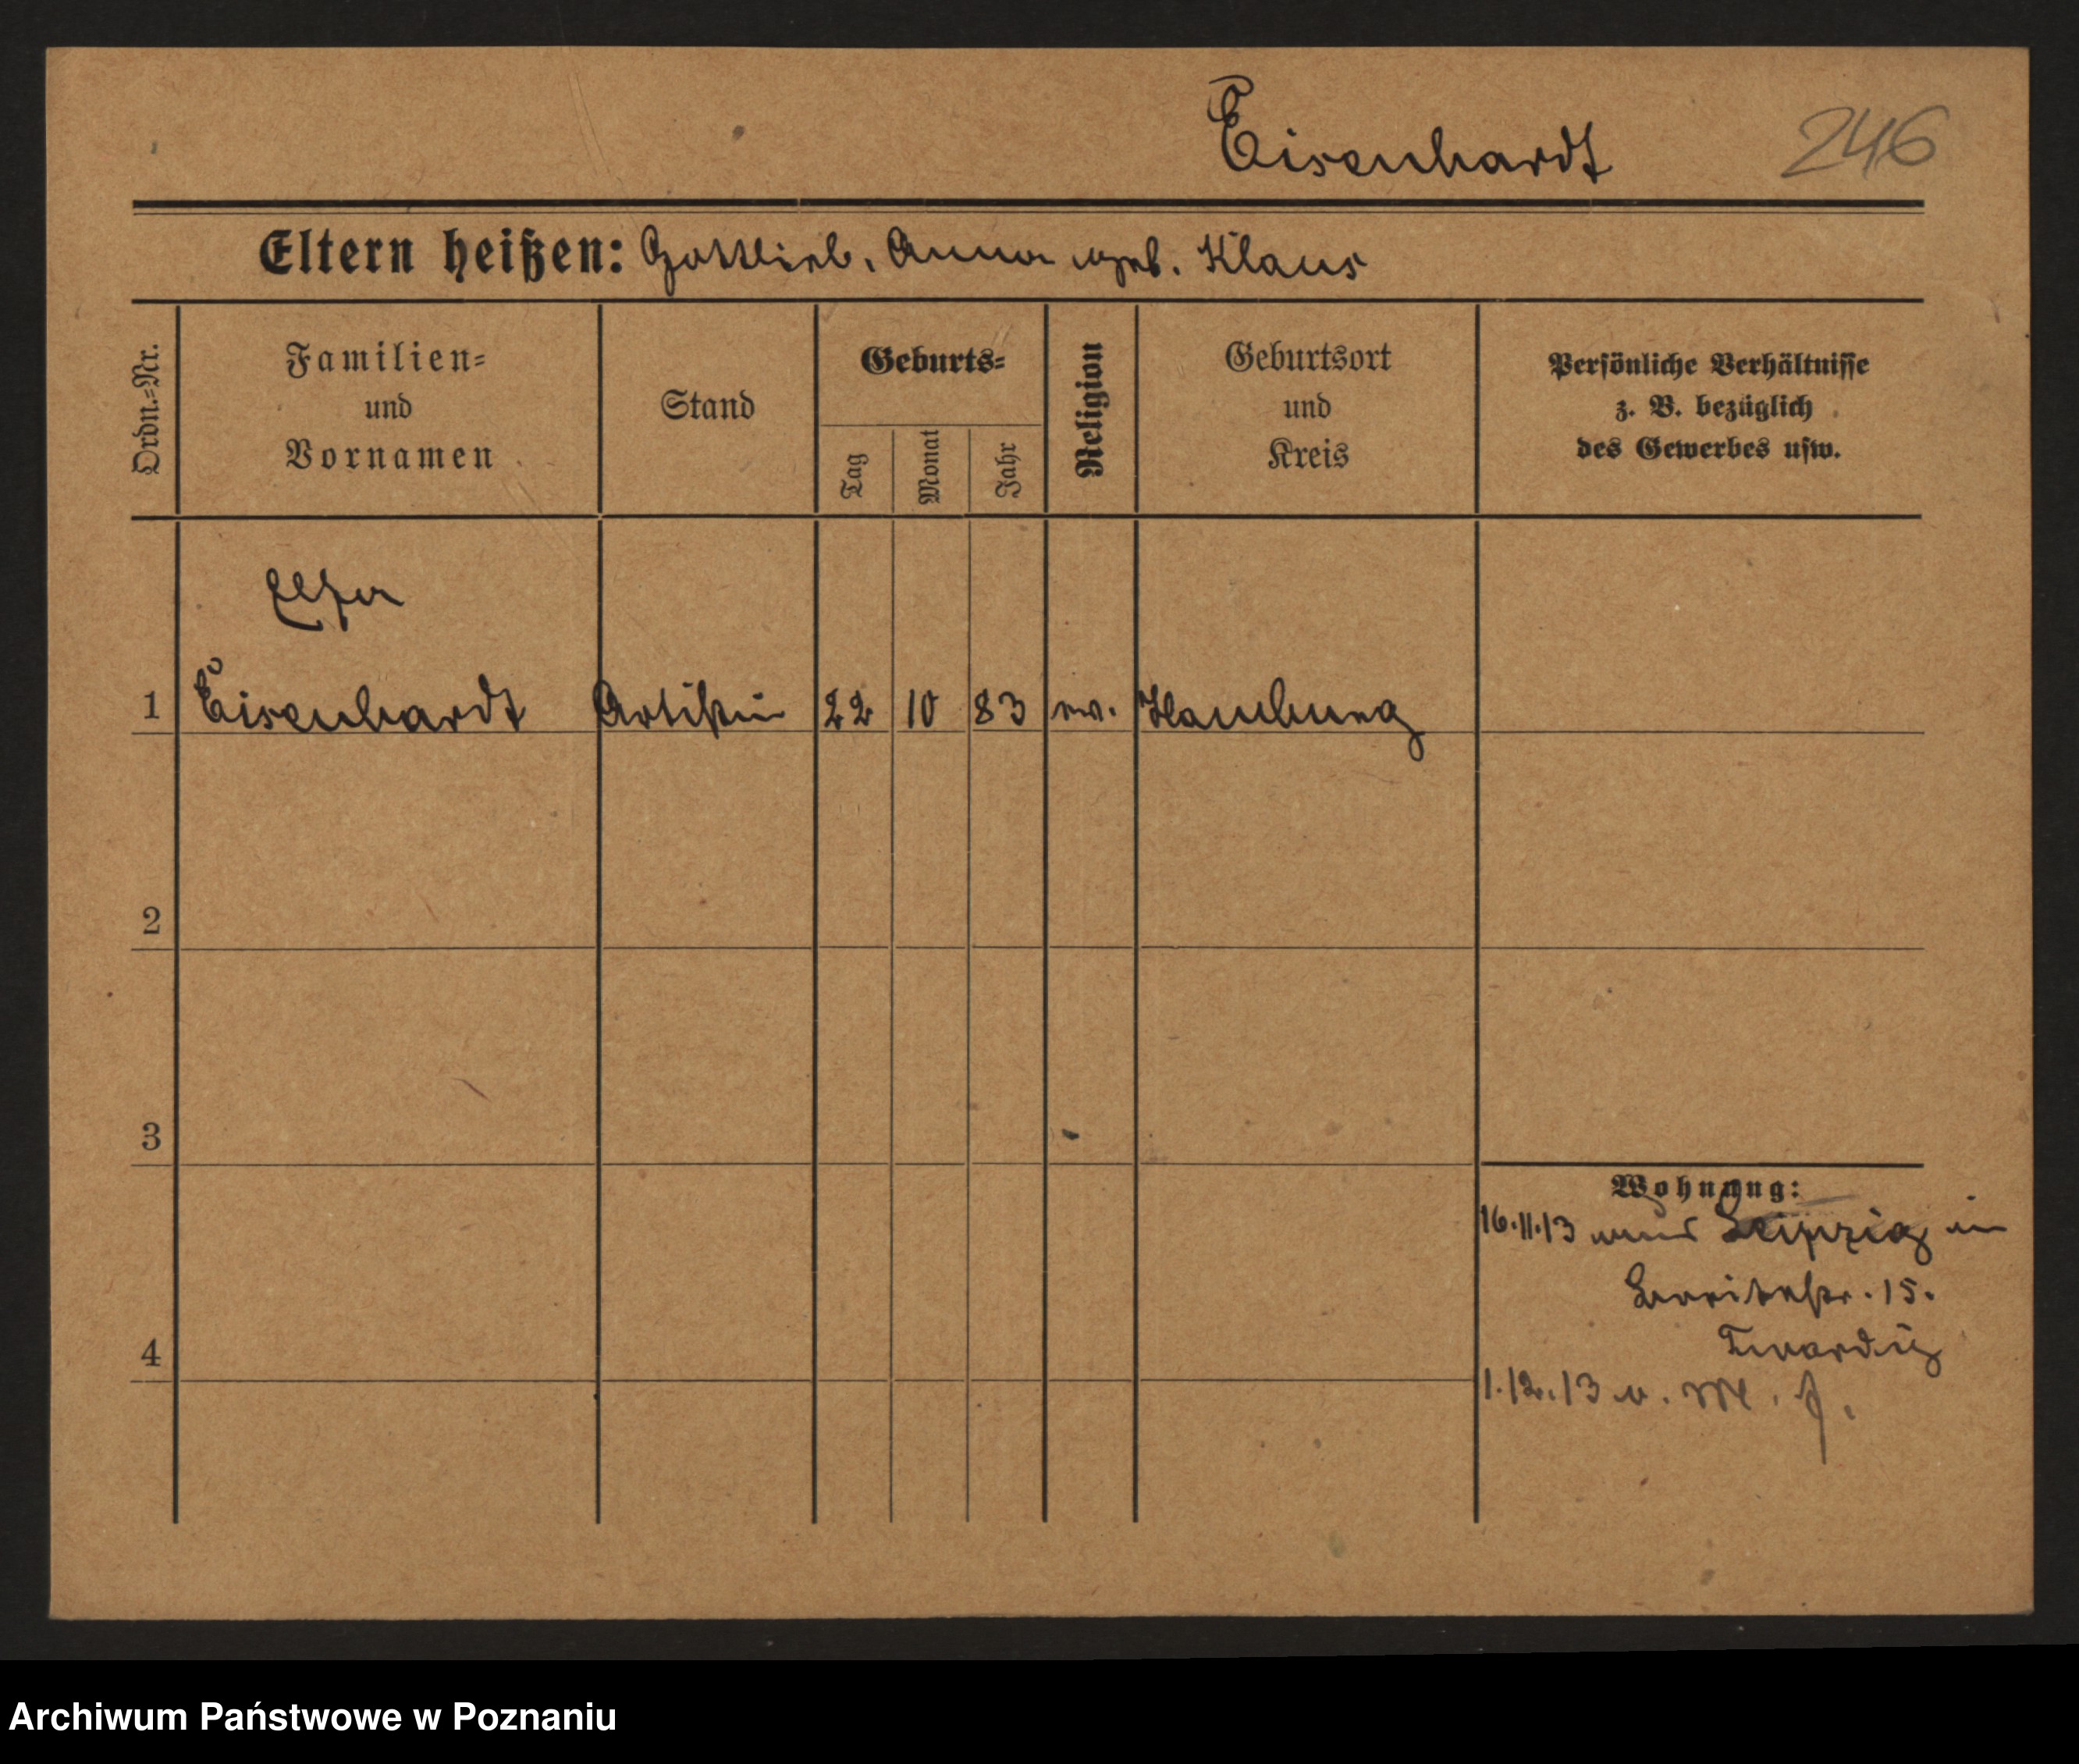 Eisenhardt 246
Eltern heißen: Gottlieb, Anna geb. Klaus
Ordn.=Nr.
Familien=
und
Vornamen
Stand
Geburts=
Tag
Monat
Jahr
Religion
Geburtsort
und
Kreis
Persönliche Verhältnisse
z. B. bezüglich
des Gewerbes usw.
1 Eisenhardt Artistin 22 10 83 ev. Hamburg
2
3
4
Wohnung:
16.11.13 aus Leipzig in
Breitestr. 15.
1.12.13 n. M.
Archiwum Państwowe w Poznaniu